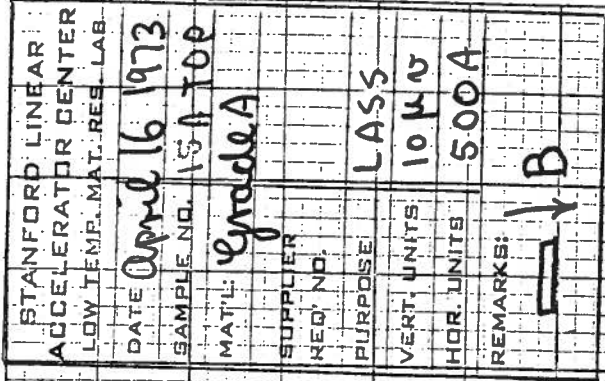 STANFORD LINEAR
ACCELERATOR CENTER
LOW TEMP. MAT. RES. LAB.
DATE April 16 1973
SAMPLE NO. 15A TOP
MAT'L: Grade A
SUPPLIER
REQ' NO.
PURPOSE LASS
VERT. UNITS 10 μv
HOR. UNITS 500A
REMARKS:
B